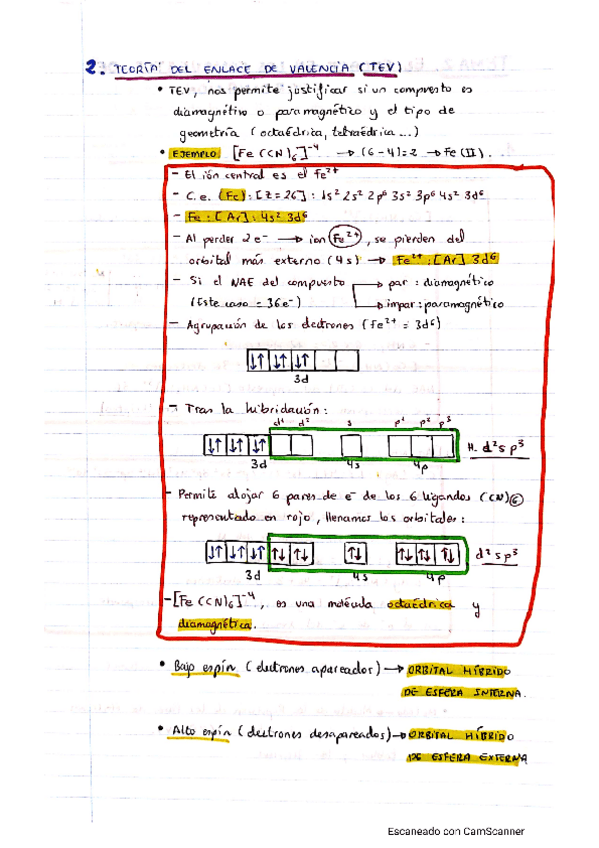 2. TEORÍA DEL ENLACE DE VALENCIA (TEV)
• TEV, nos permite justificar si un compuesto es
diamagnético o paramagnético y el tipo de
geometría (octaédrica, tetraédrica ...)
• EJEMPLO: [Fe (CN)6]-4 → (6-4)=2 → Fe(II).
- El ión central es el Fe2+
- C.e. (Fe): [Z=26]: 1s2 2s2 2p6 3s2 3p6 4s2 3d6
- Fe: [Ar]: 4s2 3d6
- Al perder 2e- → ion Fe2+, se pierden del
orbital más externo (4s) → Fe2+: [Ar] 3d6
- Si el NAE del compuesto → par: diamagnético
(Este caso = 36e-) → impar: paramagnético
- Agrupación de los electrones (Fe2+ = 3d6)
↑↓ ↑↓ ↑↓
3d
- Tras la hibridación:
d1 d2 s p1 p2 p3
↑↓ ↑↓ ↑↓ H. d2sp3
3d 4s 4p
- Permite alojar 6 pares de e- de los 6 ligandos (CN)6
representado en rojo, llenamos los orbitales:
↑↓ ↑↓ ↑↓ ↑↓ ↑↓ ↑↓ ↑↓ ↑↓ ↑↓ d2sp3
3d 4s 4p
- [Fe (CN)6]-4, es una molécula octaédrica y
diamagnética.
• Bajo espín (electrones apareados) → ORBITAL HÍBRIDO
DE ESFERA INTERNA.
• Alto espín (electrones desapareados) → ORBITAL HÍBRIDO
DE ESFERA EXTERNA
Escaneado con CamScanner